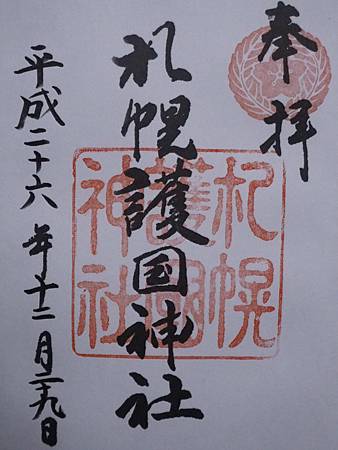 奉拝
札幌護国神社
札幌
護國
神社
平成二十六年十二月二十九日